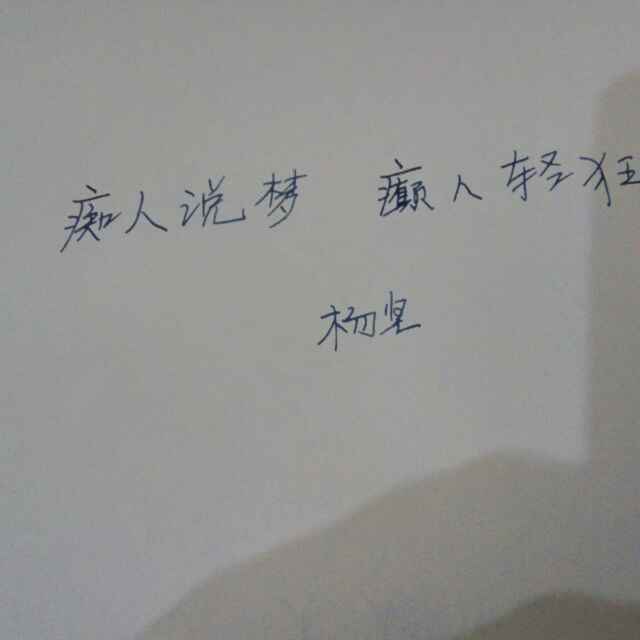 痴人说梦 癫人轻狂
杨坚